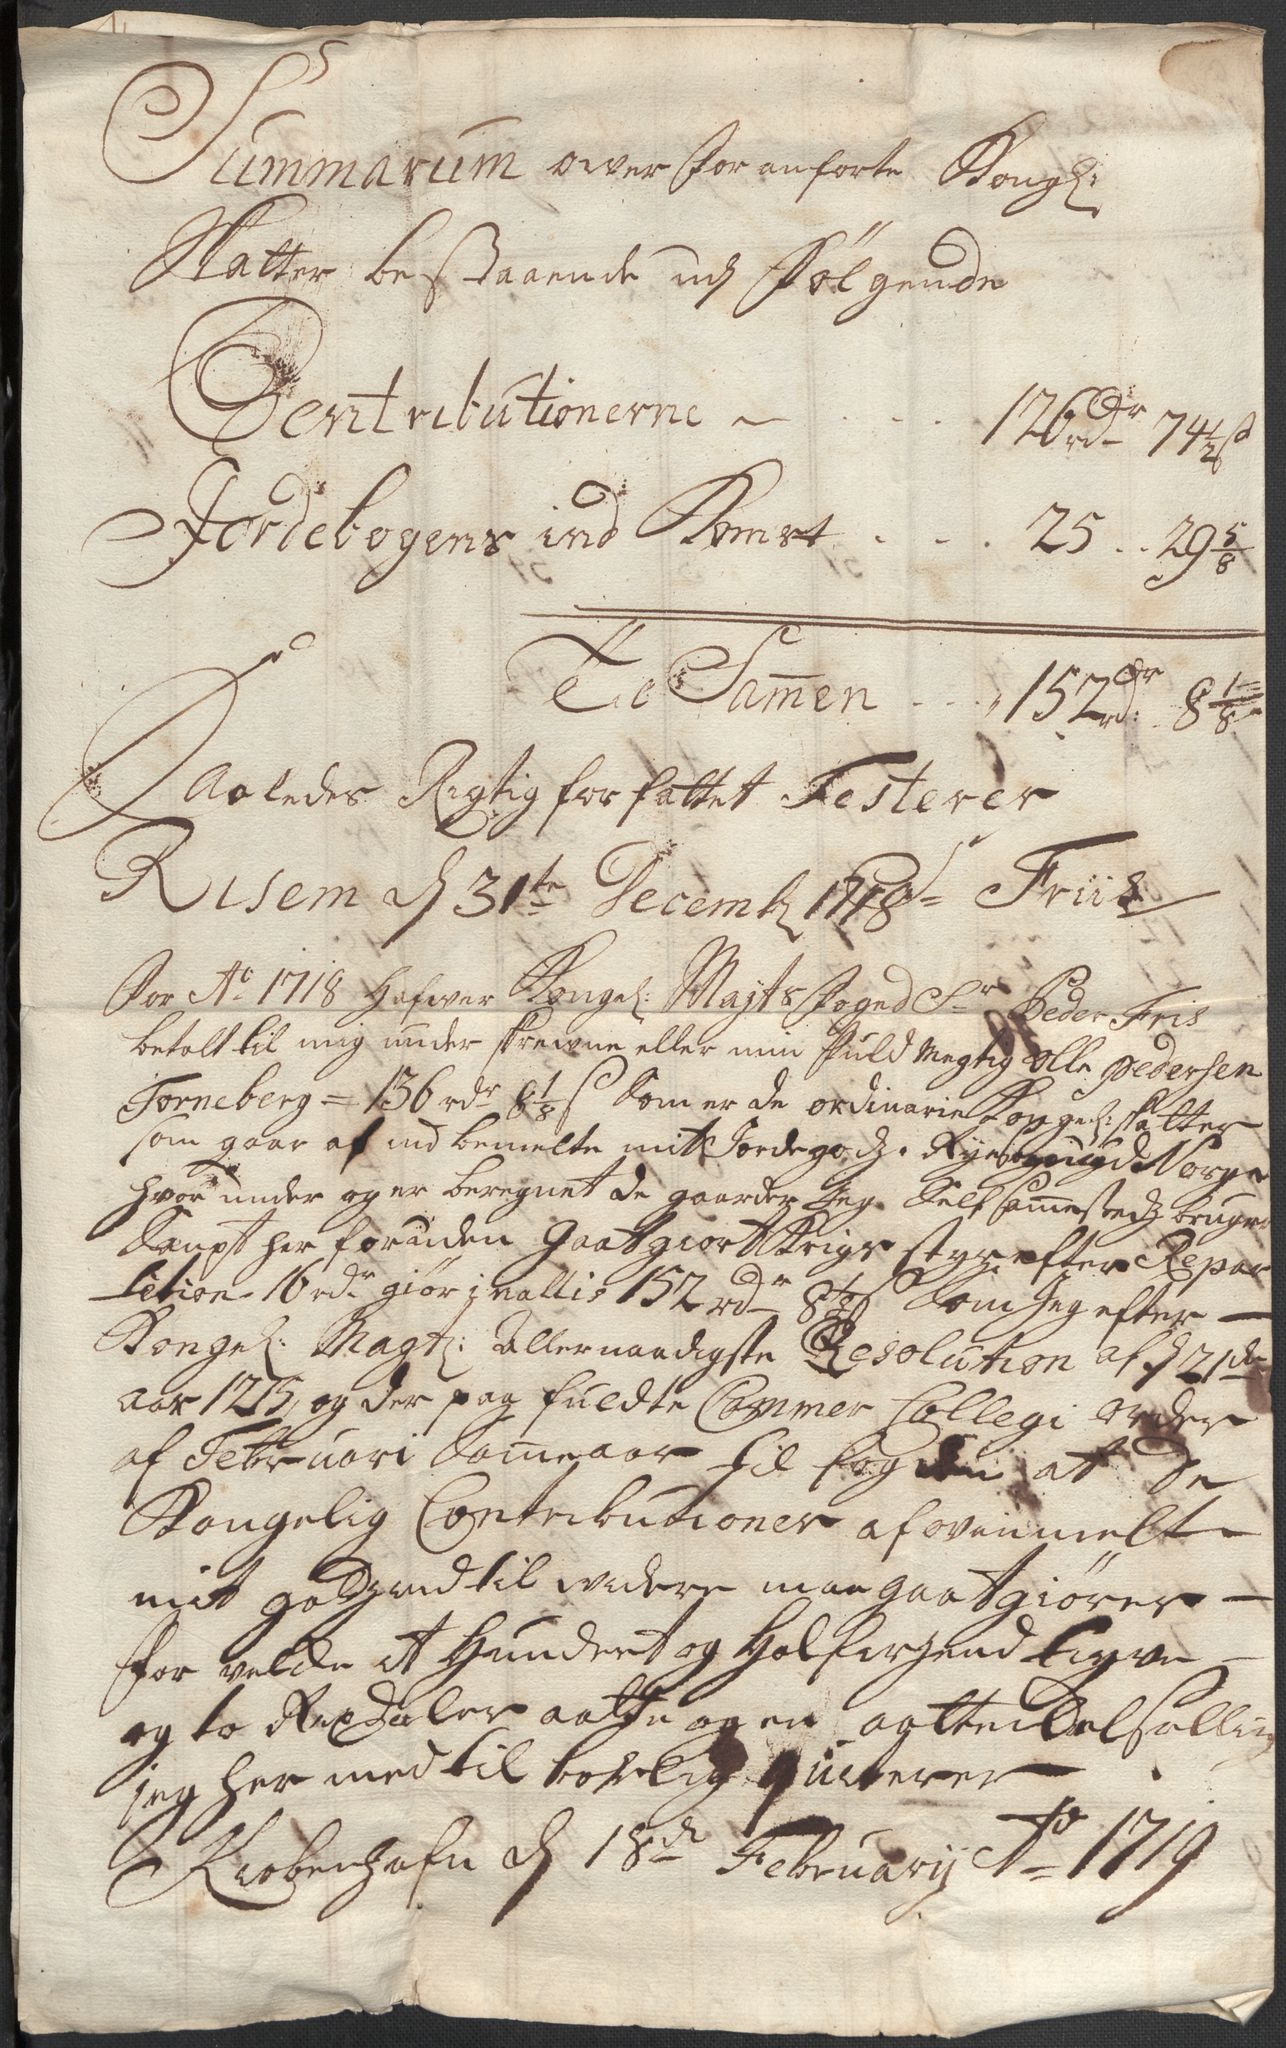 Summarum over for anforte Kongl:
Skatter bestaaende udj følgende
Contributionerne - . . . 126 rdr 74½ s
Jordebogens ind Komst . . . 25 .. 29 5/8
Til Samen . . . 152 rdr: 8 1/8
Saaledes Rigtig forfattet Testerer
Risem d 31te Decemb 1718 = Friis
For Ao 1718 hafwer Kongel: Mayts foged Sr Peder Friis
betalt til mig under skrewne eller min fuld Megtig Olle Pedersen
Torneberg = 136 rdr 8 1/8 s Som er de ordinarie Kongel: skatter
som gaar af ind bemelte mit Jordegodz i Norge
hvor under og er beregnet de gaarder Jeg Self samestedz bruger
Sampt her foruden Gaatgiort Krigs styr efter Repar
tition 16 rdr giør j vallis 152 rdr 8 1/8 s Som Jeg efter
Kongel: Mayt: Allernaadigste Resolution af d 21de
aar 1715, og der paa fuldte Cammer Collegi order
af Februari Same aar til fogden at de
Kongelig Contributioner af ovenmelte
mit godz ind til widere maa gaatgiøres
for velde it Hundert og Halftrezind tiyve
og to Rixdaler aatte og en aattendel skilling
jeg her med tilbørlig qviterer
Kiøbenhafn d 18de Februarij Ao 1719